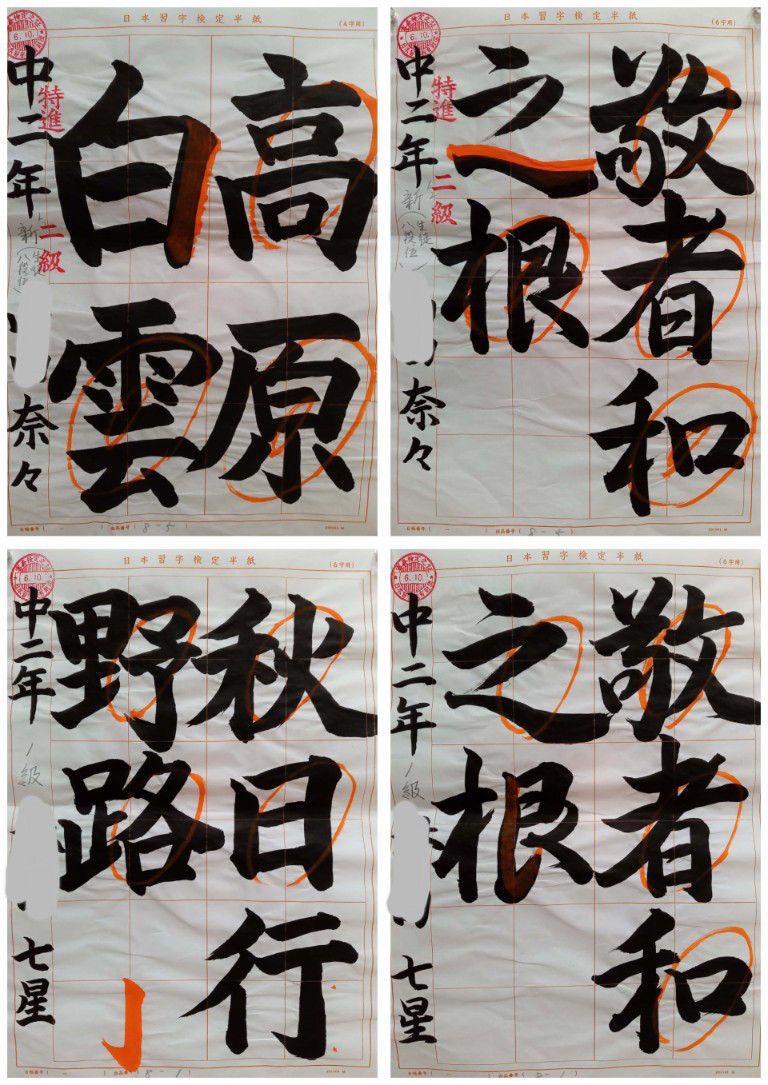 日本習字検定半紙
(4字用)
6.10.
高原
白雲
特進
二級
中二年
新
奈々
8-5
日本習字検定半紙
(6字用)
6.10.
敬者和
之根
特進
二級
中二年
新
奈々
8-5
日本習字検定半紙
(6字用)
6.10.
秋日行
野路
中二年
1級
七星
8-1
日本習字検定半紙
(6字用)
6.10.
敬者和
之根
中二年
1級
七星
8-1